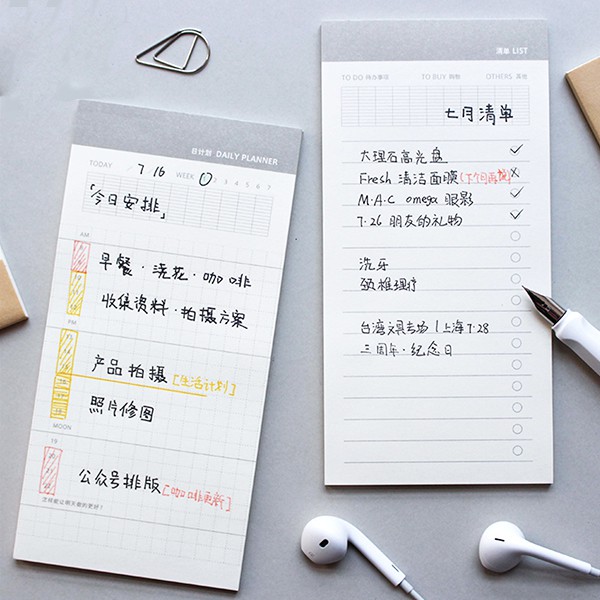 日计划 DAILY PLANNER
TODAY 7 16 WEEK 1 2 3 4 5 6 7
「今日安排」
AM
早餐·浇花·咖啡
收集资料·拍摄方案
PM
产品拍摄[生活计划]
照片修图
MOON
19
公众号排版[咖啡更新]
怎样能让明天做的更好?
清单 LIST
TO DO 待办事项 TO BUY 购物 OTHERS 其他
七月清单
大理石高光盘
Fresh 清洁面膜(下个月再说)
M.A.C omega 眼影
7.26 朋友的礼物
洗牙
颈椎理疗
台湾文具专场 | 上海7.28
三周年·纪念日